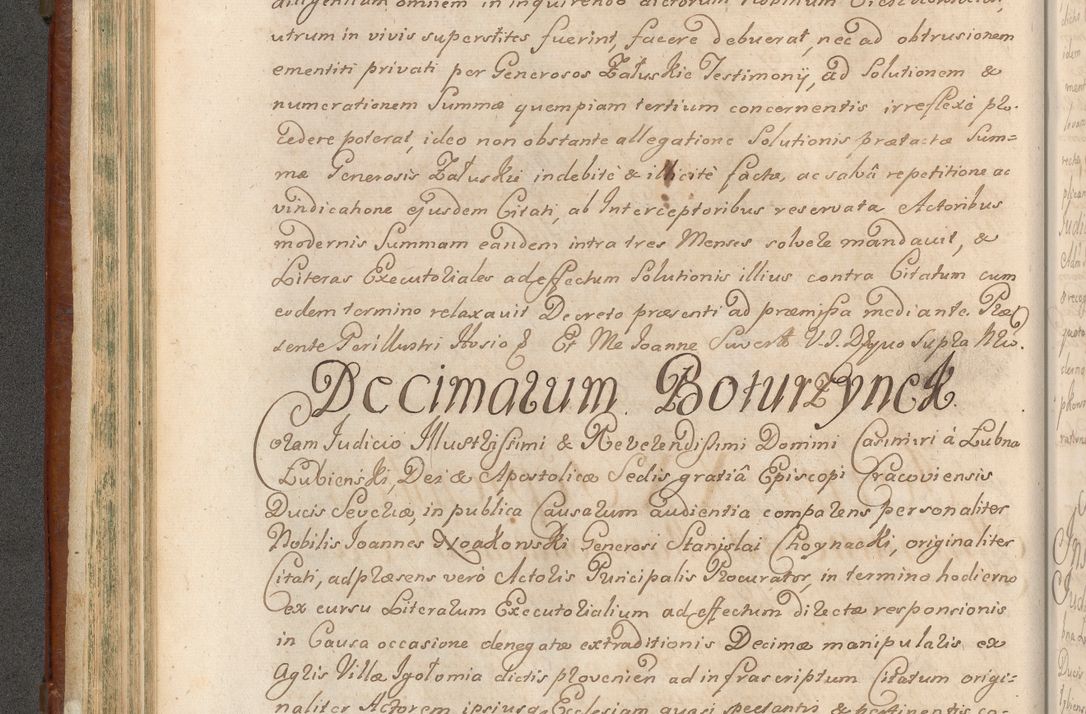 diligentiam omnem in inquirendo dictorum Nobilium
utrum in vivis superstites fuerint, facere debuerat, nec ad obtrusionem
ementiti privati per Generosos Załuskie Testimonij, ad Solutionem &
numerationem Summæ quempiam tertium concernentis irreflexè pro-
cedere poterat, ideo non obstante allegatione Solutionis, prætactæ Sum=
mæ Generosis Załuskie indebitè & illicitè factæ, ac salvâ repetitione ac
vindicatione ejusdem Citati, ab Interceptoribus reservata Actoribus
modernis Summam eandem intra tres Menses solvere mandavit, &
Literas Executoriales ad effectum Solutionis illius contra Citatum cum
eodem termino relaxavit Decreto præsenti ad præmissa mediante. Præ
sente Perillustri Hosio Et Me Joanne Suvert V. I. D. quo supra Nrio.
Decimarum Boturzynck.
Coram Judicio Illustrissimi & Reverendissimi Domini Casimiri à Lubna
Lubienski, Dei & Apostolicæ Sedis gratiâ Episcopi Cracoviensis
Ducis Severiæ, in publica Causarum audientia comparens personaliter
Nobilis Joannes Generosi Stanislai Choynacki, originaliter
Citati, ad præsens verò Actoris Principalis Procurator, in termino hodierno
ex cursu Literarum Executorialium ad effectum directæ responsionis
in Causa occasione denegatæ extraditionis Decimæ manipularis, ex
Agris Villæ Jgołomia dictis provenien ad infrascriptum Citatum origi=
naliter Actorem ipsiusq Ecclesiam quasi spectantis & pertinentis